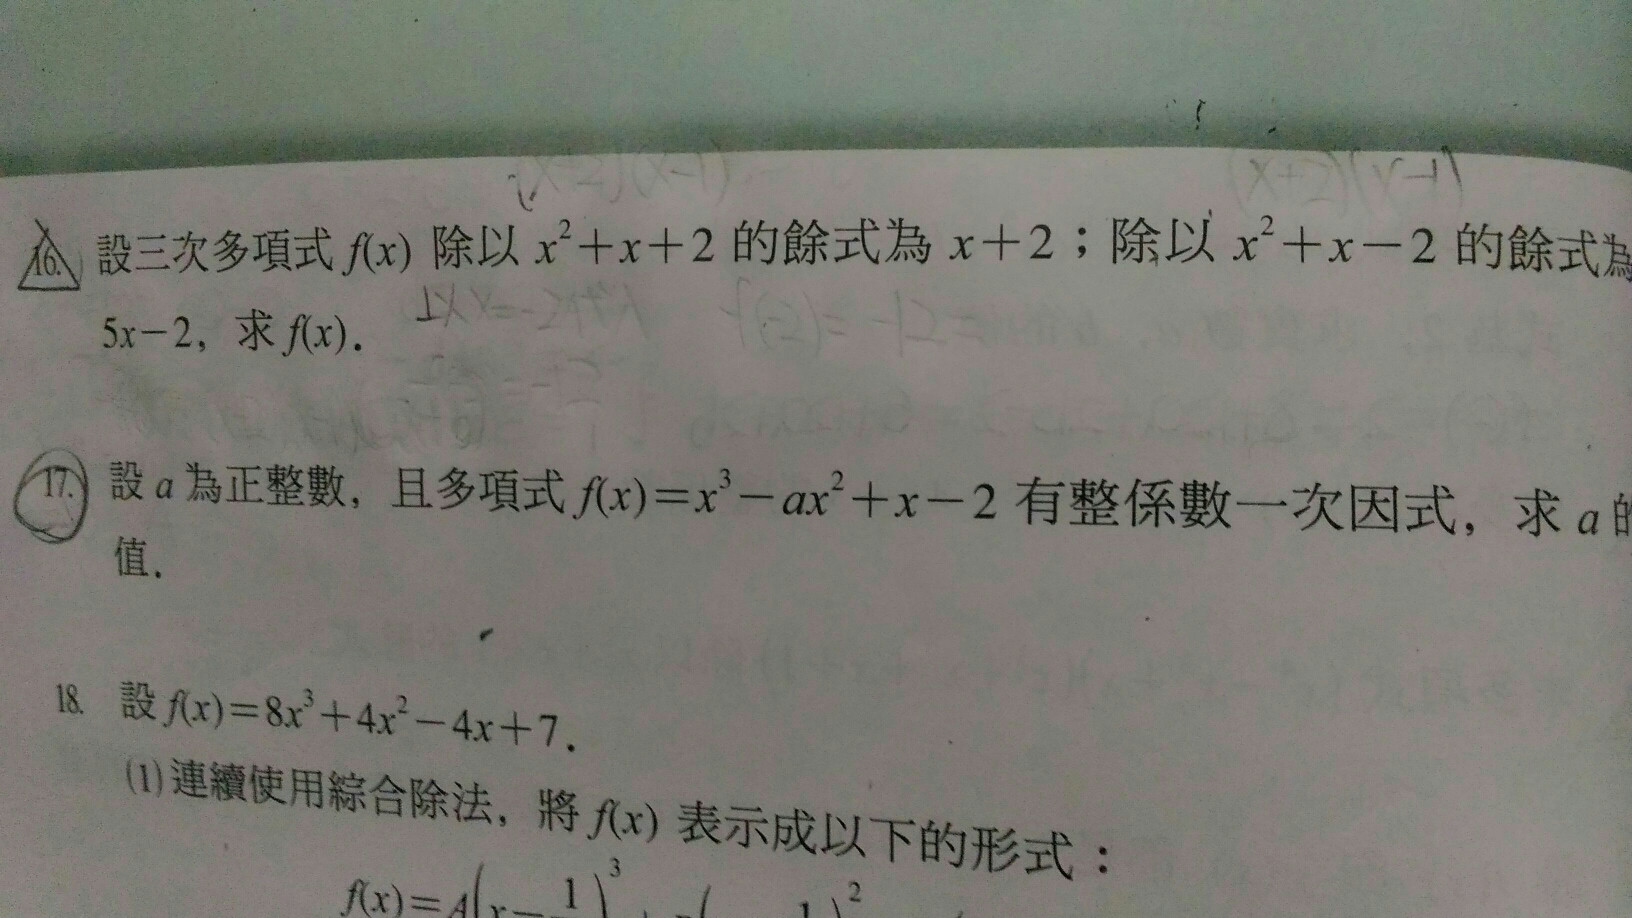 16. 設三次多項式 f(x) 除以 x²+x+2 的餘式為 x+2；除以 x²+x-2 的餘式為
5x-2，求 f(x)．
17. 設 a 為正整數，且多項式 f(x)=x³-ax²+x-2 有整係數一次因式，求 a 的
值．
18. 設 f(x)=8x³+4x²-4x+7．
(1) 連續使用綜合除法，將 f(x) 表示成以下的形式：
f(x)=A(x-1)³